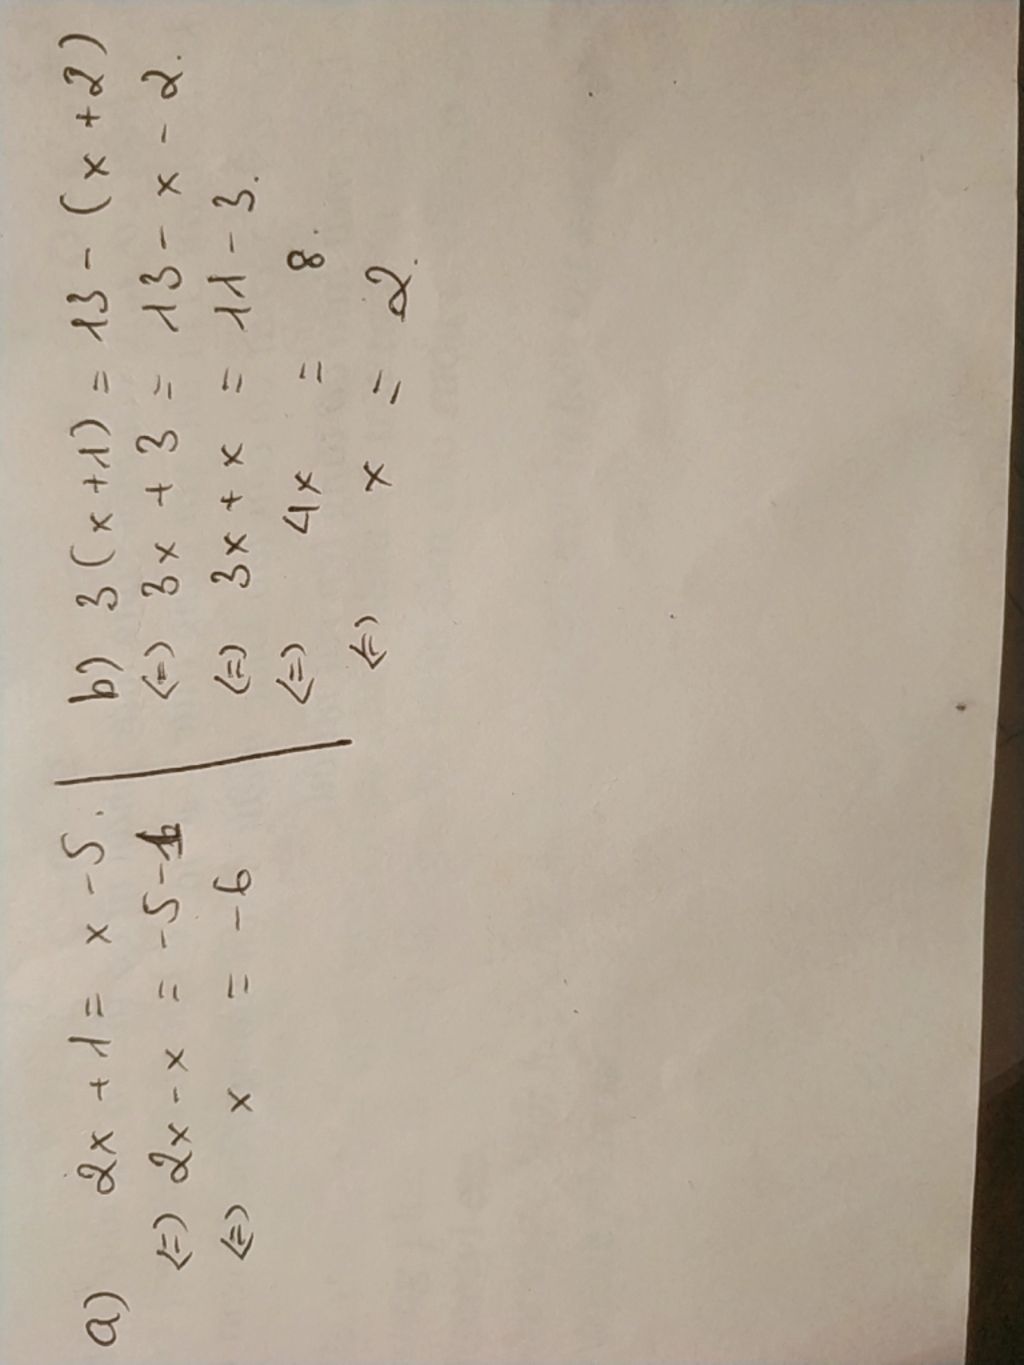 a) 2x + 1 = x - 5.
(=) 2x - x = -5 - 1
(=) x = -6
b) 3(x+1) = 13 - (x+2)
(=) 3x + 3 = 13 - x - 2.
(=) 3x + x = 11 - 3.
(=) 4x = 8.
(=) x = 2.